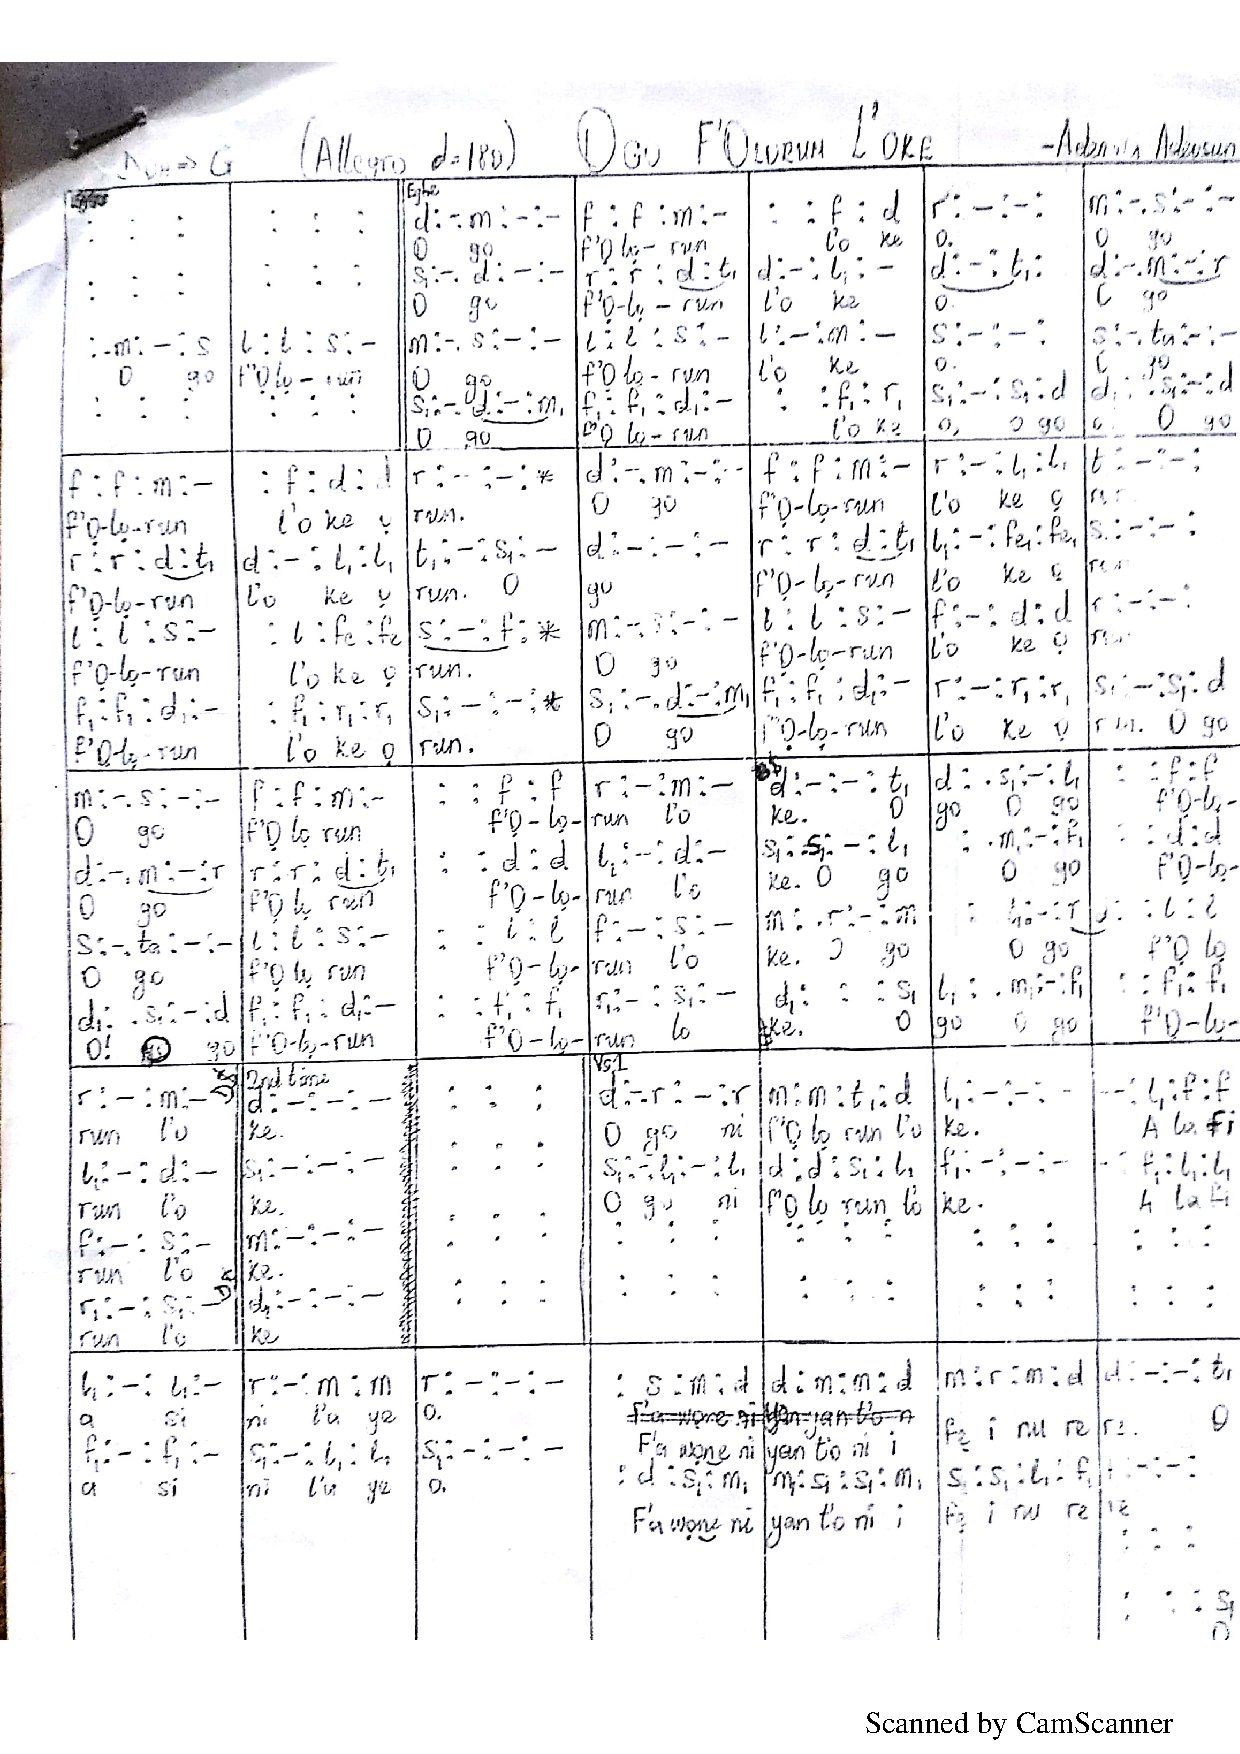 Doh => G (Allegro d=180) OGO F'OLORUN L'OKE
: : : | : : : | Egbe d:-.m:-:- | f:f:m:- | : :f:d | r:-:-: | m:-.s:-:-
O go | f'Ọ lọ-run | l'o ke | o. | O go
: : : | : : : | s:-.d:-:- | r:r:d:t₁ | d:-:l₁:- | d:-:t₁: | d:-.m:-:r
O go | f'Ọ-lọ-run | l'o ke | o. | go
:.m:-:s | l:l:s:- | m:-.s:-:- | l:l:s:- | l:-:m:- | s:-:-: | s:-.ta:-:-
O go | f'Ọ lọ-run | O go | f'Ọ lọ-run | l'o ke | o. | go
: : : | : : : | s₁:-.d:-:m₁ | f₁:f₁:d₁:- | : :f₁:r₁ | s₁:-:s₁:d | d₁: .s₁:-:d
O go | f'Ọ lọ-run | l'o ke | o, O go | o. O go
f:f:m:- | :f:d:d | r:-:-:* | d:-.m:-:- | f:f:m:- | r:-:l₁:l₁ | t:-:-:
f'Ọ-lọ-run | l'o ke ọ | run. | O go | f'Ọ-lọ-run | l'o ke ọ | run.
r:r:d:t₁ | d:-:l₁:l₁ | t₁:-:s₁:- | d:-:-:- | r:r:d:t₁ | l₁:-:fe₁:fe₁ | s:-:-:
f'Ọ-lọ-run | l'o ke ọ | run. O | go | f'Ọ-lọ-run | l'o ke ọ | run
l:l:s:- | :l:fe:fe | s:-:f:* | m:-.s:-:- | l:l:s:- | f:-:d:d | r:-:-:
f'Ọ-lọ-run | l'o ke ọ | run. | O go | f'Ọ-lọ-run | l'o ke ọ | run.
f₁:f₁:d₁:- | :f₁:r₁:r₁ | s₁:-:-:* | s₁:-.d:-:m₁ | f₁:f₁:d₁:- | r:-:r₁:r₁ | s₁:-:s₁:d
f'Ọ-lọ-run | l'o ke ọ | run. | O go | f'Ọ-lọ-run | l'o ke ọ | run. O go
m:-.s:-:- | f:f:m:- | : :f:f | r:-:m:- | d:-:-:t₁ | d: .s₁:-:l₁ | : :f:f
O go | f'Ọ lọ run | f'Ọ-lọ- | run l'o | ke. O | go O go | f'Ọ-lọ-
d:-.m:-:r | r:r:d:t₁ | : :d:d | l₁:-:d:- | s₁:.s₁:-:l₁ | : .m₁:-:f₁ | : :d:d
O go | f'Ọ lọ run | f'Ọ-lọ- | run l'o | ke. O go | O go | f'Ọ-lọ-
s:-.ta:-:- | l:l:s:- | : :l:l | f:-:s:- | m: .r:-:m | : :l:l
O go | f'Ọ lọ run | f'Ọ-lọ- | run l'o | ke. O go | O go | f'Ọ lọ
d₁: .s₁:-:d | f₁:f₁:d₁:- | : :f₁:f₁ | r₁:-:s₁:- | d₁: : :s₁ | l₁: .m₁:-:f₁ | : :f₁:f₁
O! go | f'Ọ-lọ-run | f'Ọ-lọ- | run lo | ke. O | go O go | f'Ọ-lọ-
r:-:m:- | 2nd time d:-:-:- | : : : | Vs.1 d:-.r:-:r | m:m:t₁:d | l₁:-:-:- | -:l₁:f:f
run l'o | ke. | O go ni | f'Ọ lọ run l'o | ke. | A la fi
l₁:-:d:- | s₁:-:-:- | : : : | s₁:-.l₁:-:l₁ | d:d:s₁:l₁ | f₁:-:-:- | -:f₁:l₁:l₁
run l'o | ke. | O go ni | f'Ọ lọ run l'o | ke. | A la fi
f:-:s:- | m:-:-:- | : : : | : : : | : : : | : : : | : : :
run l'o | ke.
r₁:-:s₁:- | d₁:-:-:- | : : : | : : : | : : : | : : : | : : :
run l'o | ke
l₁:-:l₁:- | r:-:m:m | r:-:-:- | :s:m:d | d:m:m:d | m:r:m:d | d:-:-:t₁
a si | ni l'a ye | o. | F'a wọne ni | yan t'o n | fẹ i ru re | re. O
F'a wọne ni | yan t'o ni i
f₁:-:f₁:- | s₁:-:l₁:l₁ | s₁:-:-:- | :d:s₁:m₁ | m₁:s₁:s₁:m₁ | s₁:s₁:l₁:f₁
a si | ni l'a ye | o. | F'a wọne ni | yan t'o ni i | fẹ i ru re | re
: : :
: : :s₁
O
Scanned by CamScanner